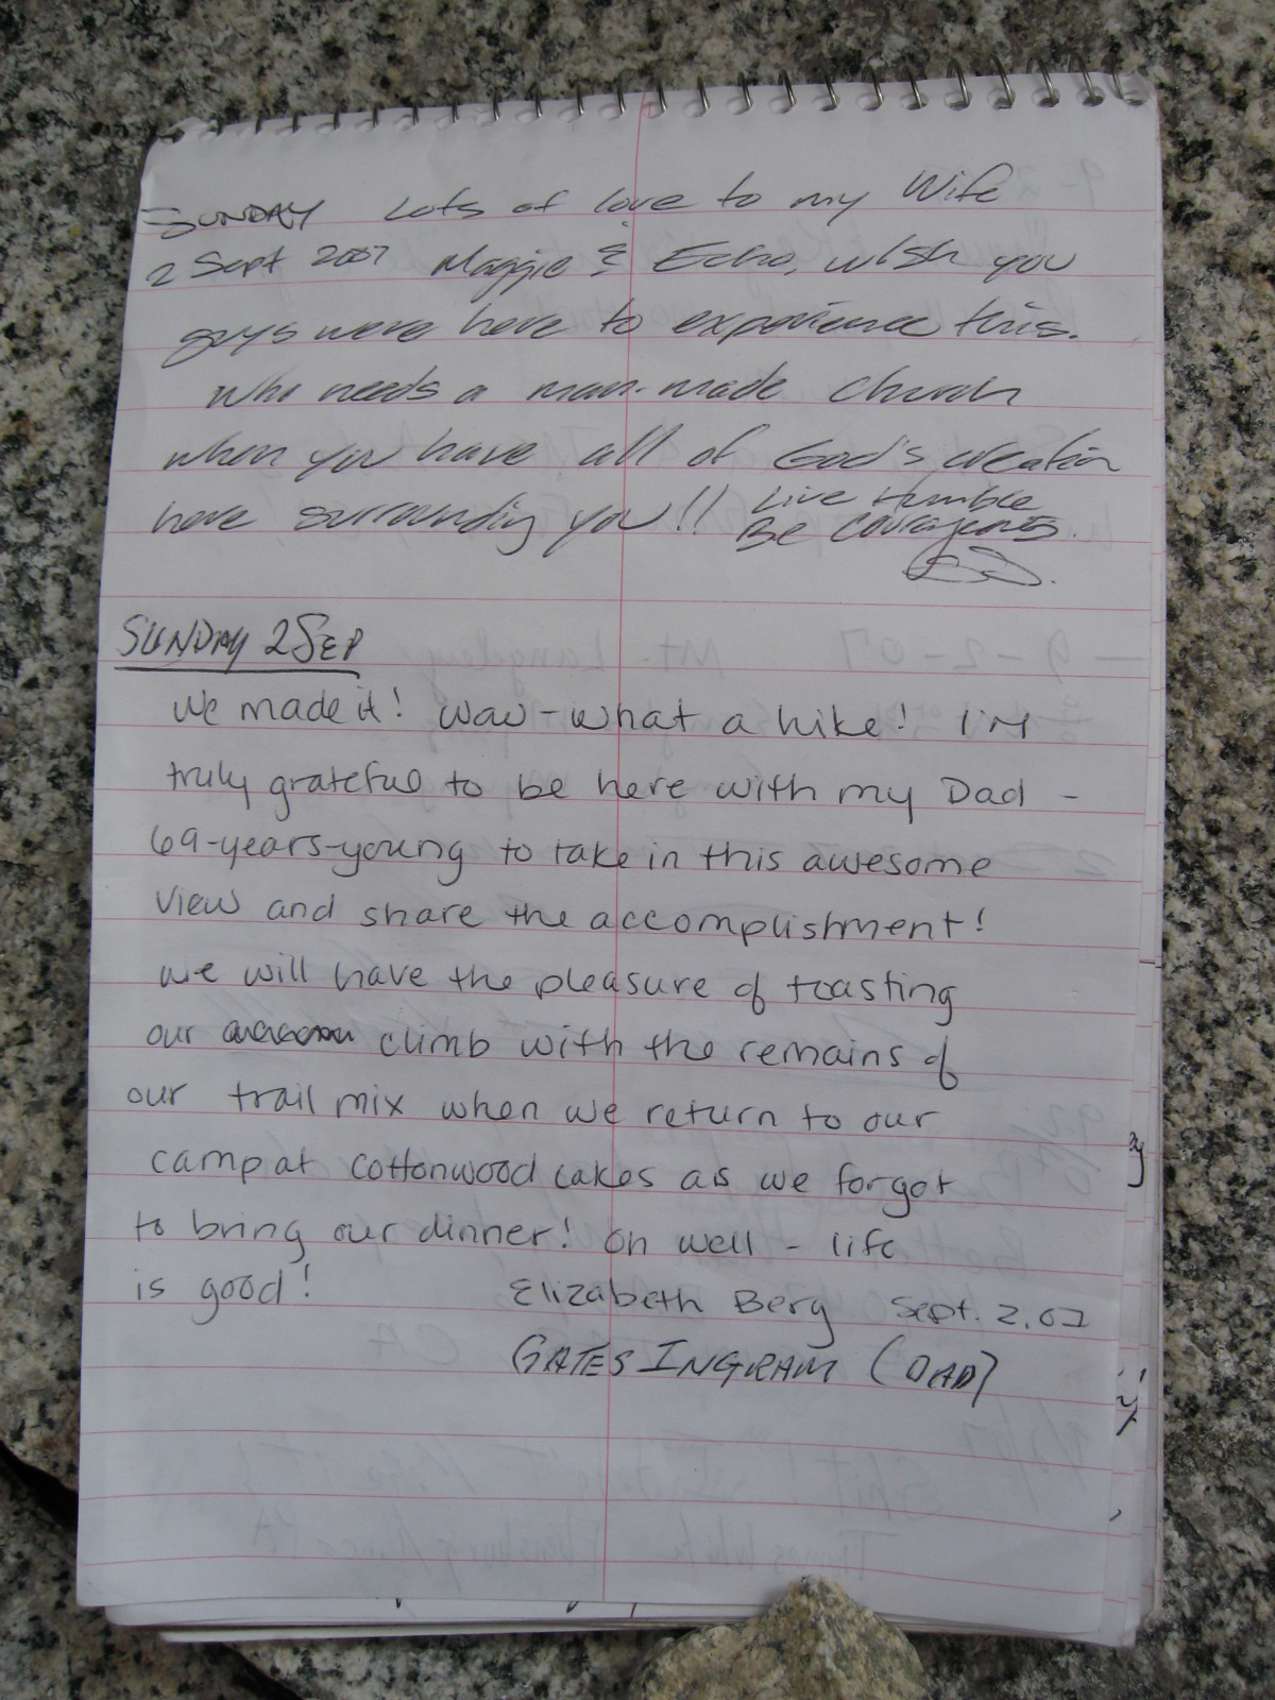 SUNDAY Lots of love to my Wife
2 Sept 2007 Maggie & Echo, wish you
guys were here to experience this.
Who needs a man-made church
when you have all of God's creation
here surrounding you!! Live Humble
Be Courageous.
SUNDAY 2 SEP
We made it! Wow - what a hike! I'm
truly grateful to be here with my Dad -
69-years-young to take in this awesome
view and share the accomplishment!
We will have the pleasure of toasting
our climb with the remains of
our trail mix when we return to our
camp at Cottonwood Lakes as we forgot
to bring our dinner! Oh well - life
is good!
Elizabeth Berg Sept. 2, 07
GATES INGRAM (DAD)